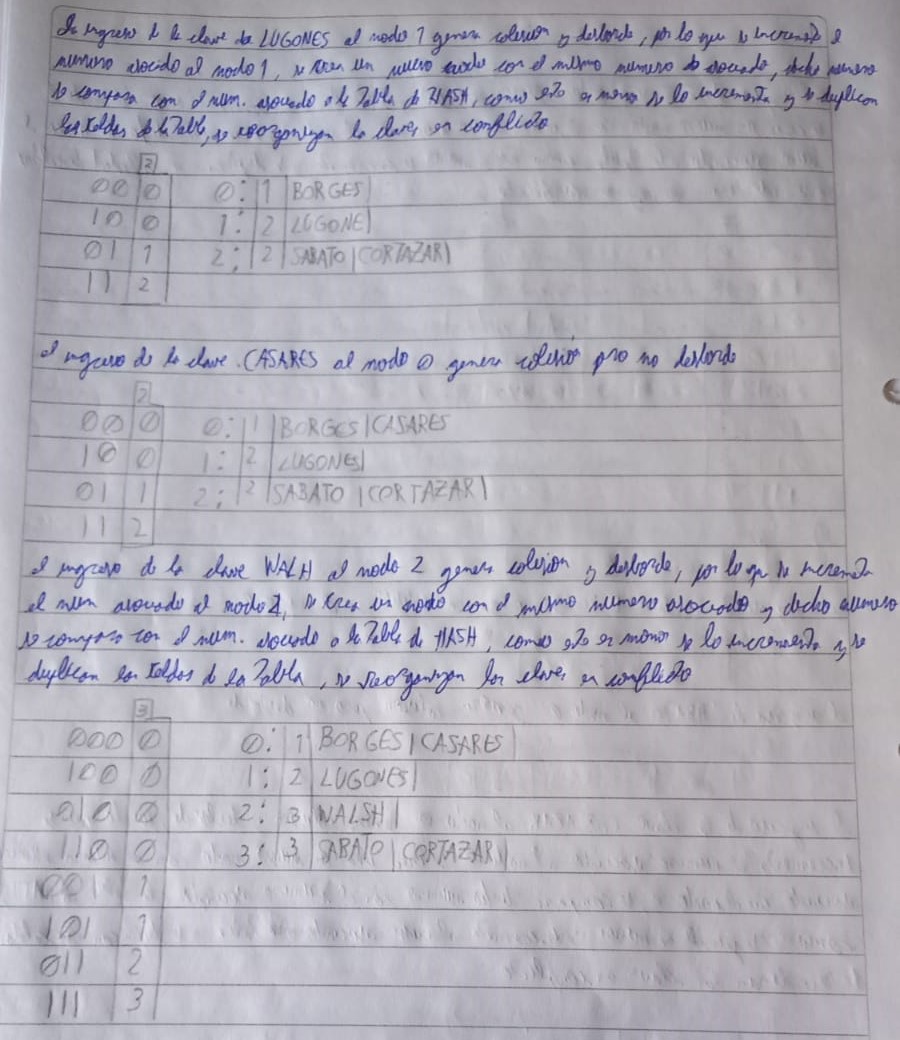 El ingreso de la clave de LUGONES al nodo 1 genera colision y desborde, por lo que se incrementa el
numero asociado al nodo 1, se crea un nuevo nodo con el mismo numero asociado, dicho numero
se compara con el num. asociado a la Tabla de HASH, como este es menor se lo incrementa y se duplican
las celdas de la Tabla, se reorganizan las claves en conflicto
2
00 0 0: 1 BORGES
10 0 1: 2 LUGONE
01 1 2: 2 SABATO CORTAZAR
11 2
el ingreso de la clave CASARES al nodo 0 genera colision pero no desborde
2
00 0 0: 1 BORGES CASARES
10 0 1: 2 LUGONES
01 1 2: 2 SABATO CORTAZAR
11 2
el ingreso de la clave WALH al nodo 2 genera colision y desborde, por lo que se incrementa
el num asociado al nodo 2, se crea un nodo con el mismo numero asociado y dicho numero
se compara con el num. asociado a la Tabla de HASH, como este es menor se lo incrementa y se
duplican las celdas de la Tabla, se reorganizan las claves en conflicto
3
000 0 0: 1 BORGES CASARES
100 0 1: 2 LUGONES
010 0 2: 3 WALSH
110 0 3: 3 SABATO CORTAZAR
001 1
101 1
011 2
111 3